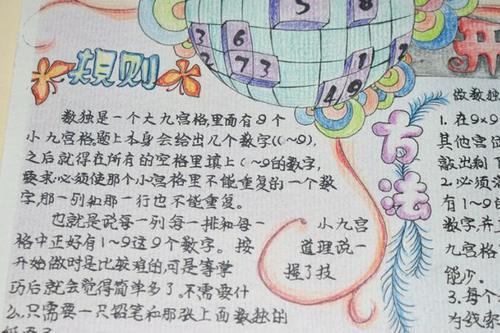 规则
数独是一个大九宫格里面有9个
小九宫格,题上本身会给出几个数字((~9),
之后就得在所有的空格里填上(~9的数字,
要求必须使那个小宫格里不能重复的一个数
字,那一列和那一行也不能重复。
也就是说每一列每一排和每一 小九宫
格中正好有1~9这9个数字。按 道理说一
开始做时是比较难的,可是等掌 握了技
巧后就会觉得简单多了。不需要什
么,只需要一只铅笔和那张上面数独的
5 8
3 6
2 7 3
1
4 9
方法
开
做数独
1. 在9×9
其他宫位
敲出剩
2. 必须
有1~9
数字,并
九宫格
能少。
3. 每个
为线索